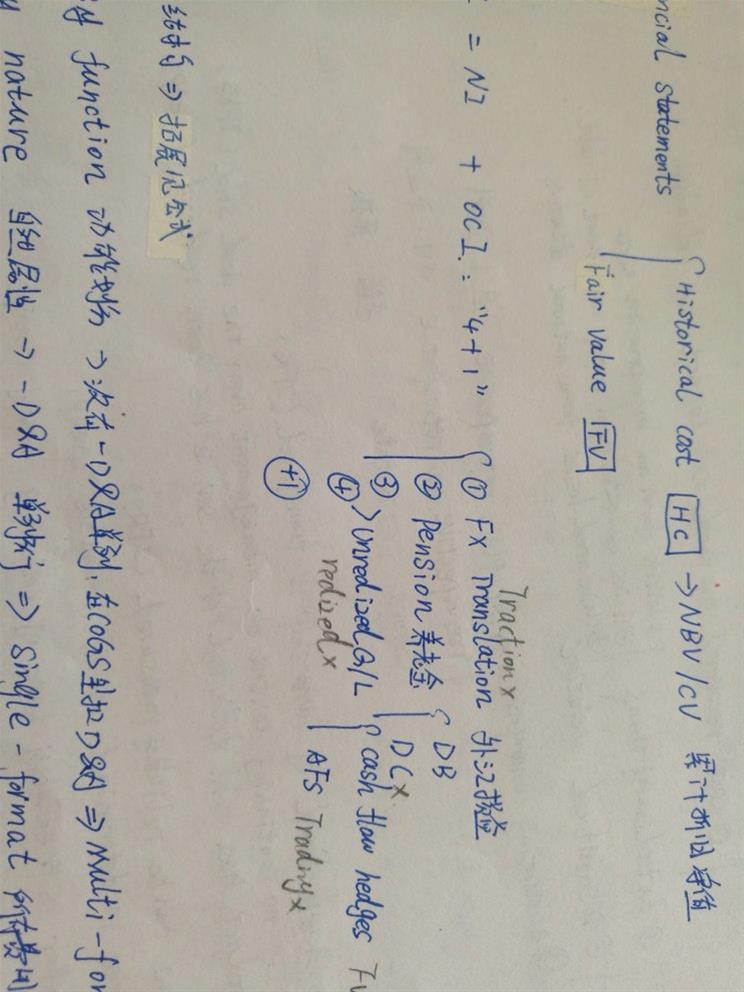 ncial statements { Historical cost HC → NBV/CV 累计折旧净值
Fair value FV
= NI + OCI : "4+1" { ① FX Translation 外汇损益
Traction x
② Pension 养老金 { DB
DC x
③
④ > Unredized G/L { cash flow hedges
redized x
AFS Trading x
+1
结构 ⇒ 拓展见公式
function 功能划分 → 没有-D&A单列, 在COGS里扣D&A ⇒ Multi-for
nature 自然属性 → -D&A 单列 ⇒ single-format 所有费用